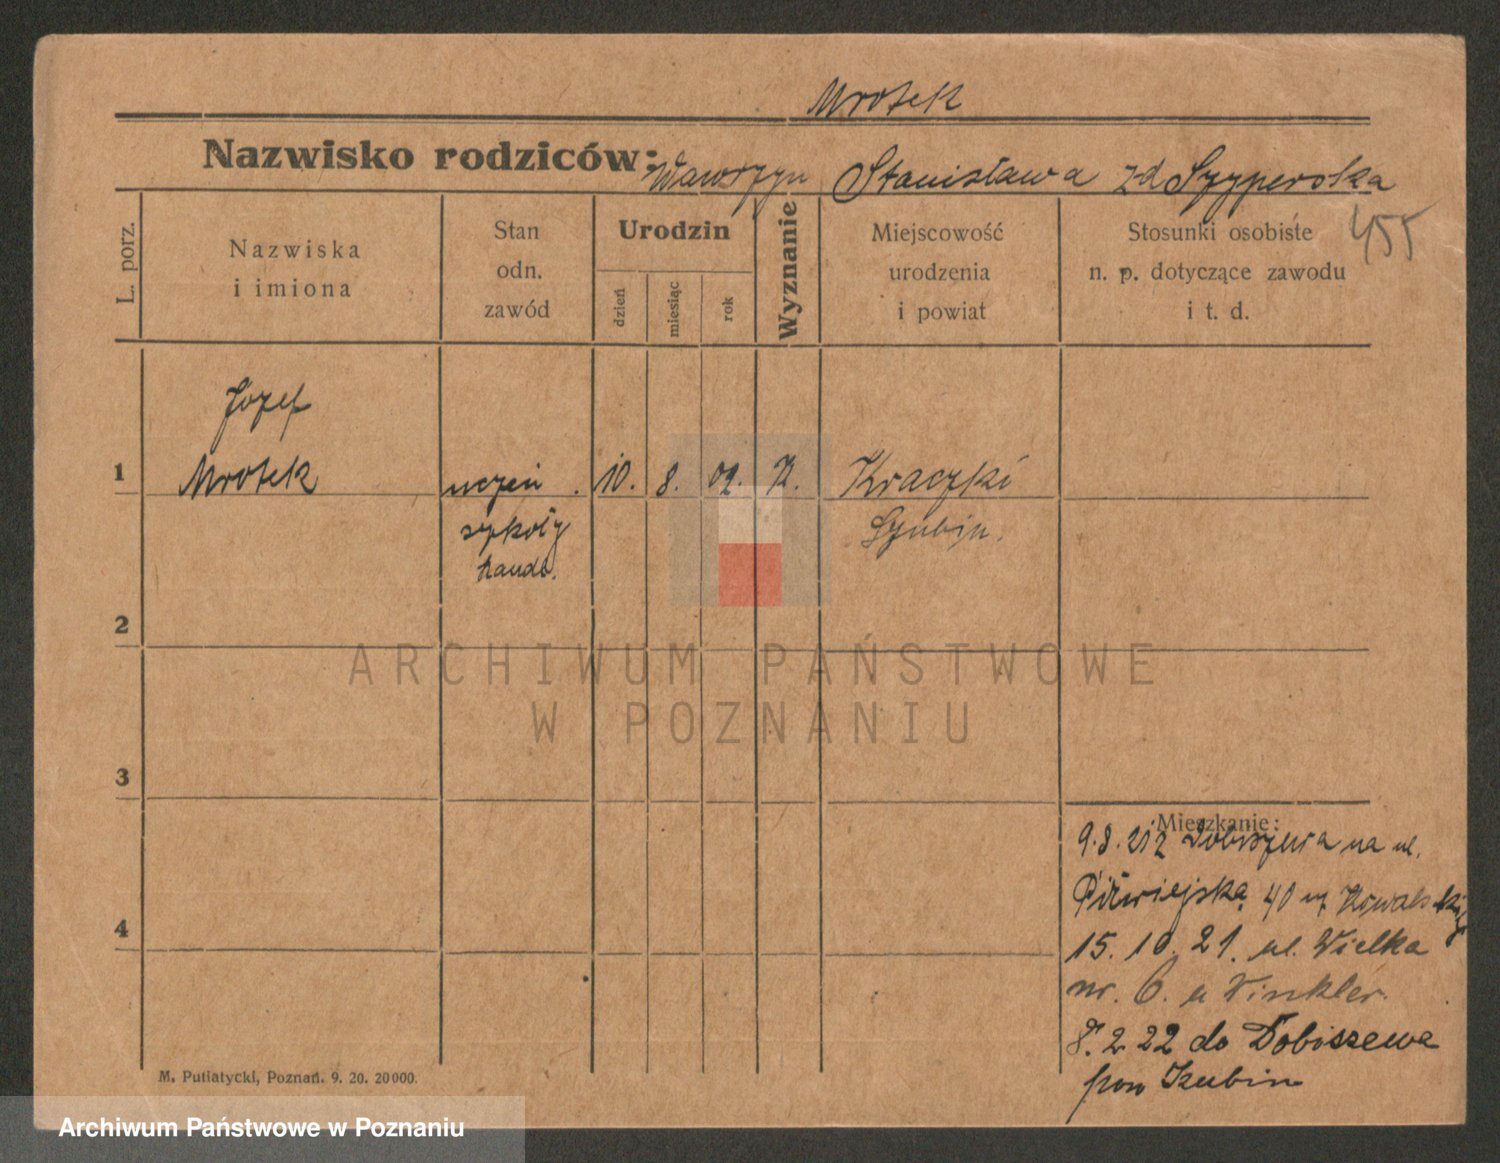 Mrotek
Nazwisko rodziców: Wawrzyn Stanisława zd Szyperska
455
L. porz.
Nazwiska
i imiona
Stan
odn.
zawód
Urodzin
dzień
miesiąc
rok
Wyznanie
Miejscowość
urodzenia
i powiat
Stosunki osobiste
n. p. dotyczące zawodu
i t. d.
Józef
1 Mrotek uczeń 10. 8. 02. K.
szkoły
handl.
Szubin.
2
3
4
Mieszkanie:
9.8.21 z Dobiszewa na ul.
40
15.10.21. ul. Wielka
nr. 6. u Winkler.
8.2 22 do Dobiszewa
pow Szubin
M. Putiatycki, Poznań. 9. 20. 20000.
ARCHIWUM PAŃSTWOWE
W POZNANIU
Archiwum Państwowe w Poznaniu